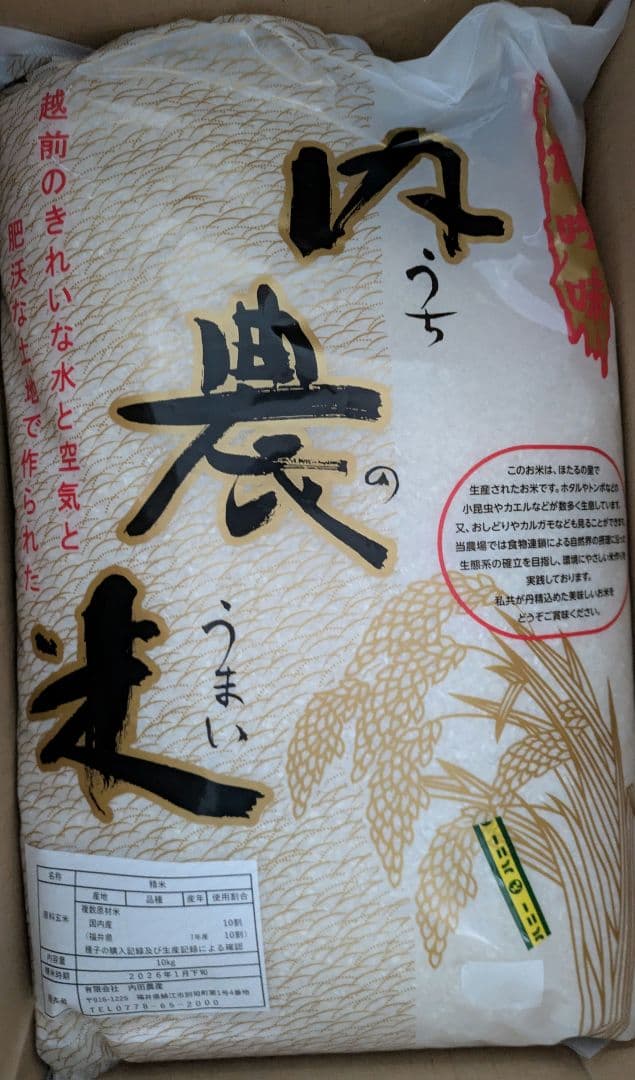 越前のきれいな水と空気と
肥沃な土地で作られた
内
うち
農の
うまい
米
味
このお米は、ほたるの里で
生産されたお米です。ホタルやトンボなどの
小昆虫やカエルなどが数多く生息しています。
又、おしどりやカルガモなども見ることができます
当農場では食物連鎖による自然界の摂理に沿った
生態系の確立を目指し、環境にやさしい米作りを
実践しております。
私共が丹精込めた美味しいお米を
どうぞご賞味ください。
名称 精米
原料玄米 産地 品種 産年 使用割合
複数原料米
国内産 10割
(福井県 7年産 10割)
種子の購入記録及び生産記録による確認
内容量 10kg
精米時期 2026年1月下旬
有限会社 内田農産
〒916-1225 福井県鯖江市
町第1号4番地
TEL0778-65-2000